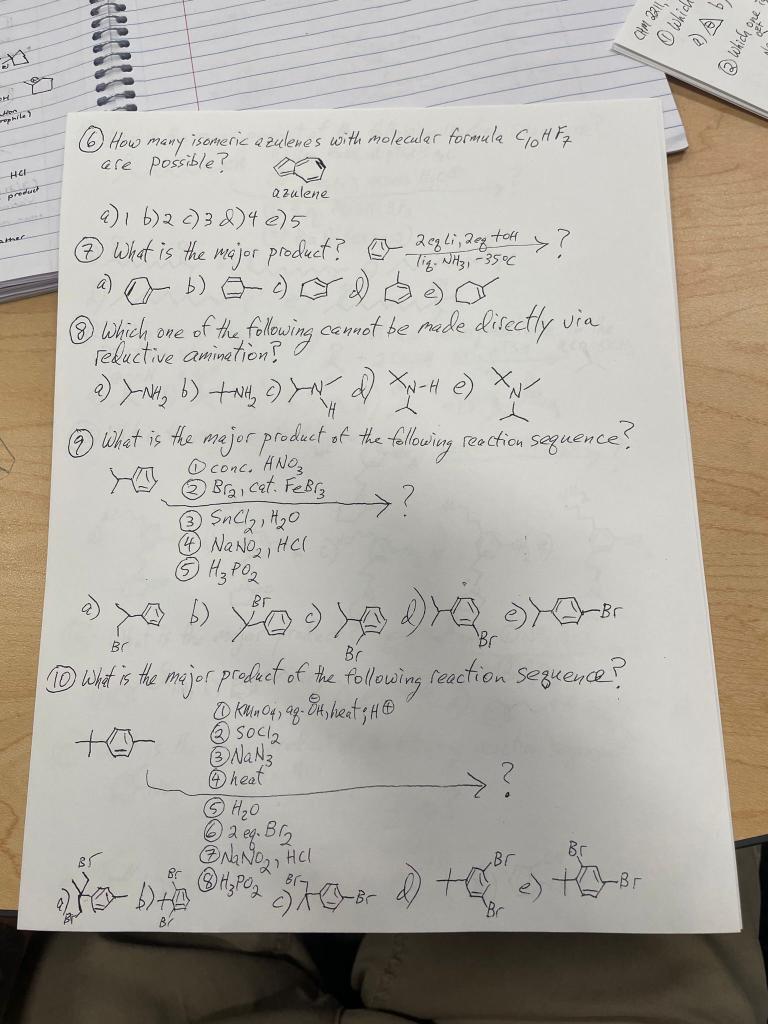 CHM 2211,
① Which
a) b)
② Which one is
HCl
product
⑥ How many isomeric azulenes with molecular formula C₁₀HF₇
are possible?
azulene
a) 1 b) 2 c) 3 d) 4 e) 5
⑦ What is the major product? 2 eq Li, 2 eq +OH ?
liq. NH₃, -35°C
a) b) c) d) e)
⑧ Which one of the following cannot be made directly via
reductive amination?
a) NH₂ b) NH₂ c) N H d) N-H e) N
⑨ What is the major product of the following reaction sequence?
① conc. HNO₃
② Br₂, cat. FeBr₃
?
③ SnCl₂, H₂O
④ NaNO₂, HCl
⑤ H₃PO₂
a) Br b) Br c) Br d) Br e) Br
⑩ What is the major product of the following reaction sequence?
① KMnO₄, aq. ⊖OH, heat; H⊕
② SOCl₂
③ NaN₃
④ heat
?
⑤ H₂O
⑥ 2 eq. Br₂
⑦ NaNO₂, HCl
⑧ H₃PO₂
a) Br Br b) Br Br c) Br Br d) Br Br e) Br Br